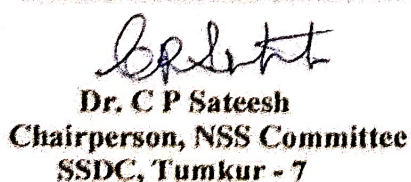 CP Sateesh
Dr. C P Sateesh
Chairperson, NSS Committee
SSDC, Tumkur - 7